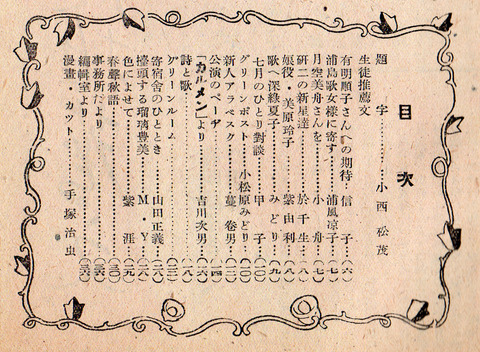 目次
題字………小西松茂
生徒推薦文
有明順子さんへの期待……信子…(六)
浦島歌女様に寄す……浦風涼子…(七)
月空美舟さんを……小舟…(七)
研二の新星達……於千生…(八)
娘役・美原玲子……紫由利…(八)
歌へ深緑夏子……みどり…(九)
七月のひとり對談……甲子…(一〇)
グリーンポスト……小松原みどり…(一二)
新人アラベスク……蔓巻男…(一三)
公演のページ……(一四)
「カルメン」より……吉川次男…(一六)
詩と歌……(一八)
グリーンルーム……(三一)
寄宿舍のひととき……山田正義…(三二)
擡頭する瑠璃豊美……M・Y…(三八)
色によせて……紫涯…(三九)
春聲秋語……(三四)
事務所だより……(三五)
編輯室より……(三六)
漫畫・カット……手塚治虫